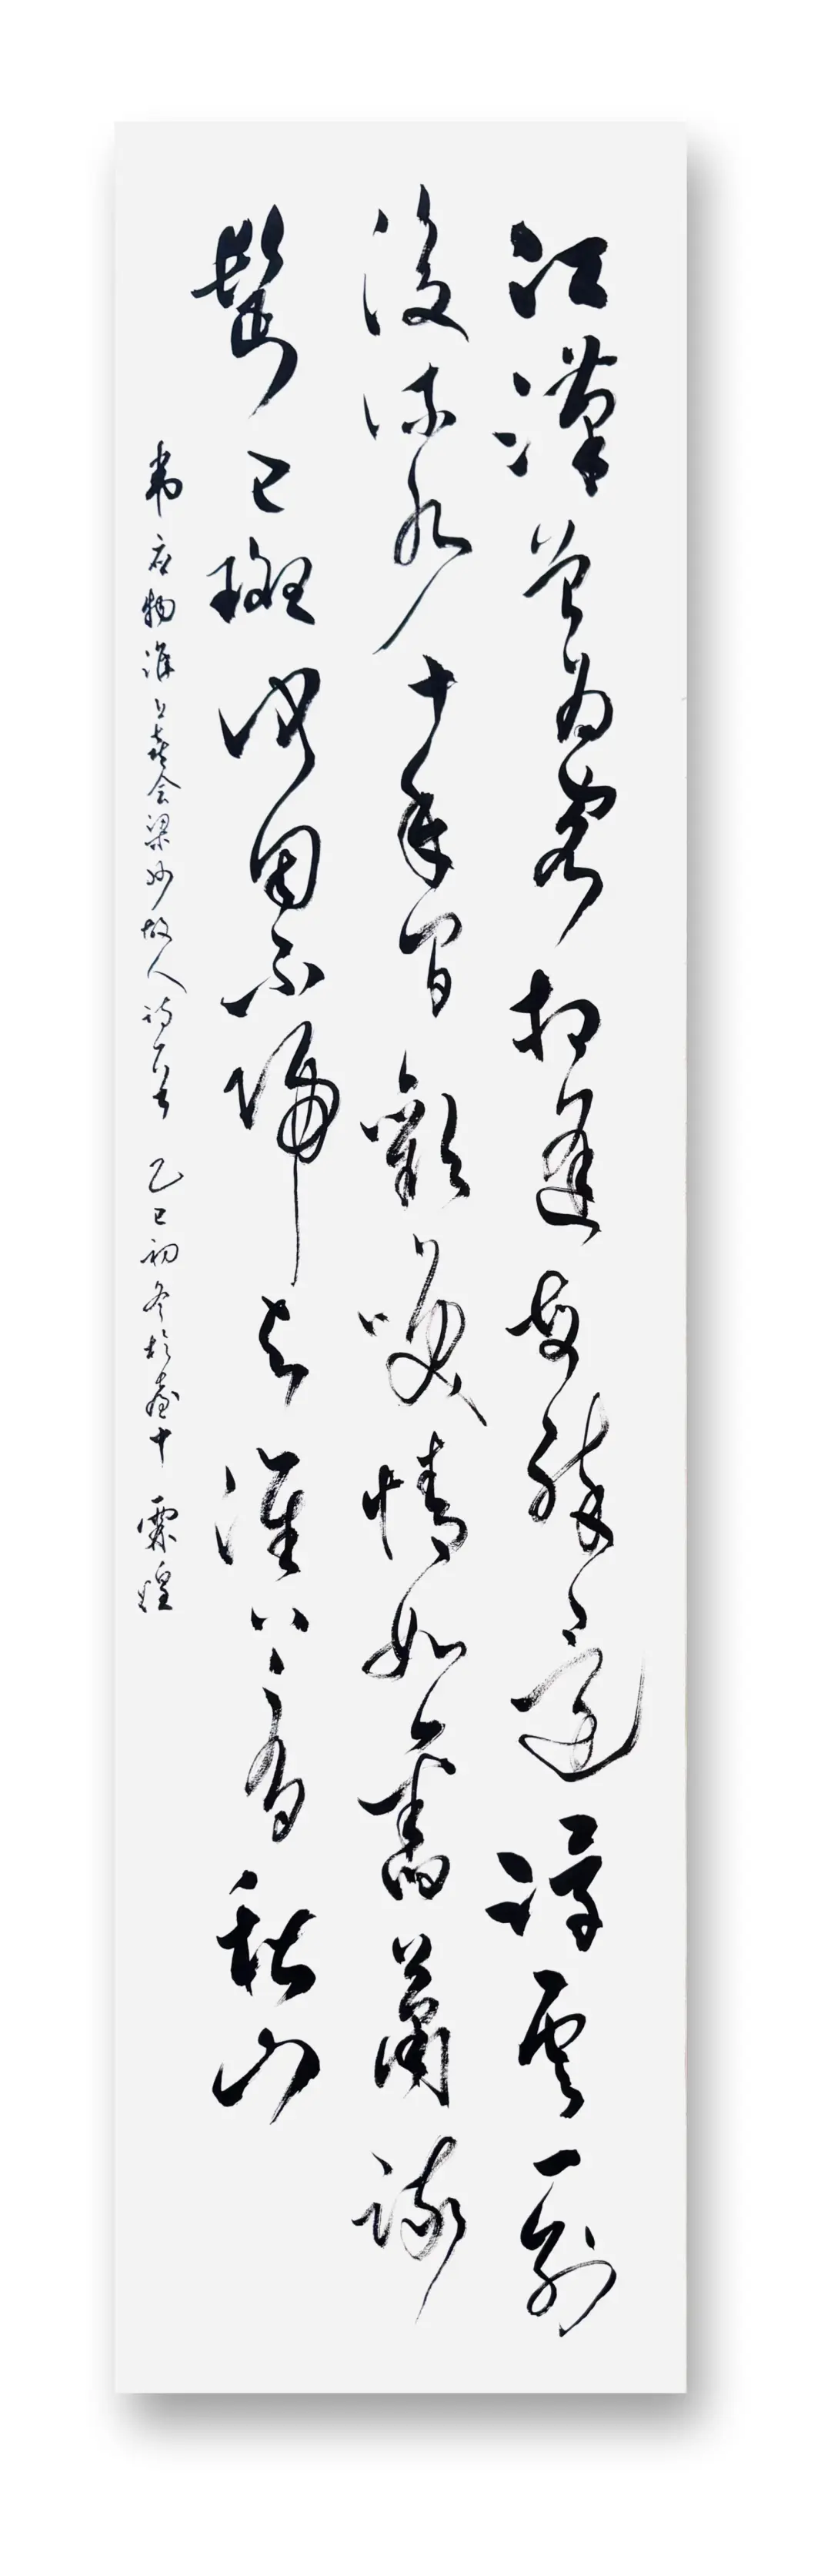 江漢曾為客相逢每醉還浮雲一別
後流水十年間歡咲情如舊蕭疎
鬢已斑何因不歸去淮上有秋山
韋應物淮上喜会梁川故人詩一首 乙巳初冬於臺 霖煌